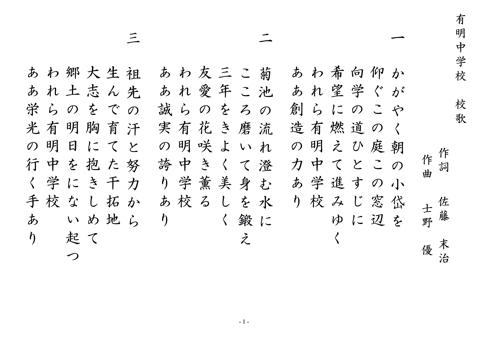 有明中学校　校歌
作詞　佐藤　末治
作曲　士野　優
一
かがやく朝の小岱を
仰ぐこの庭この窓辺
向学の道ひとすじに
希望に燃えて進みゆく
われら有明中学校
ああ創造の力あり
二
菊池の流れ澄む水に
こころ磨いて身を鍛え
三年をきよく美しく
友愛の花咲き薫る
われら有明中学校
ああ誠実の誇りあり
三
祖先の汗と努力から
生んで育てた干拓地
大志を胸に抱きしめて
郷土の明日をにない起つ
われら有明中学校
ああ栄光の行く手あり
- 1 -